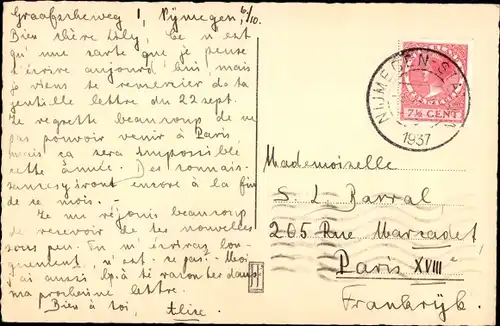 Graafscheweg 1, Nijmegen, 6/10.
Bien chère Lily, Ce n'est
qu'une carte que je peuse
t'écrire aujourd'hui mais
je viens te remercier de ta
gentille lettre du 22 sept.
Je regrette beaucoup de ne
pas pouvoir venir à Paris
mais ça sera impossible
cette année. Des
iront encore à la fin
de ce mois.
Je me réjouis beaucoup
de recevoir de tes nouvelles
sous peu. Tu m'écriras lon-
guement, n'est-ce pas? Moi
j'ai aussi à te raconter dans
ma prochaine lettre.
Bien à toi, Alice.
NIJMEGEN-ST
1937
7½ CENT
Mademoiselle
S L Barral
205 Rue Marcadet
Paris XVIIIe
Frankrijk.